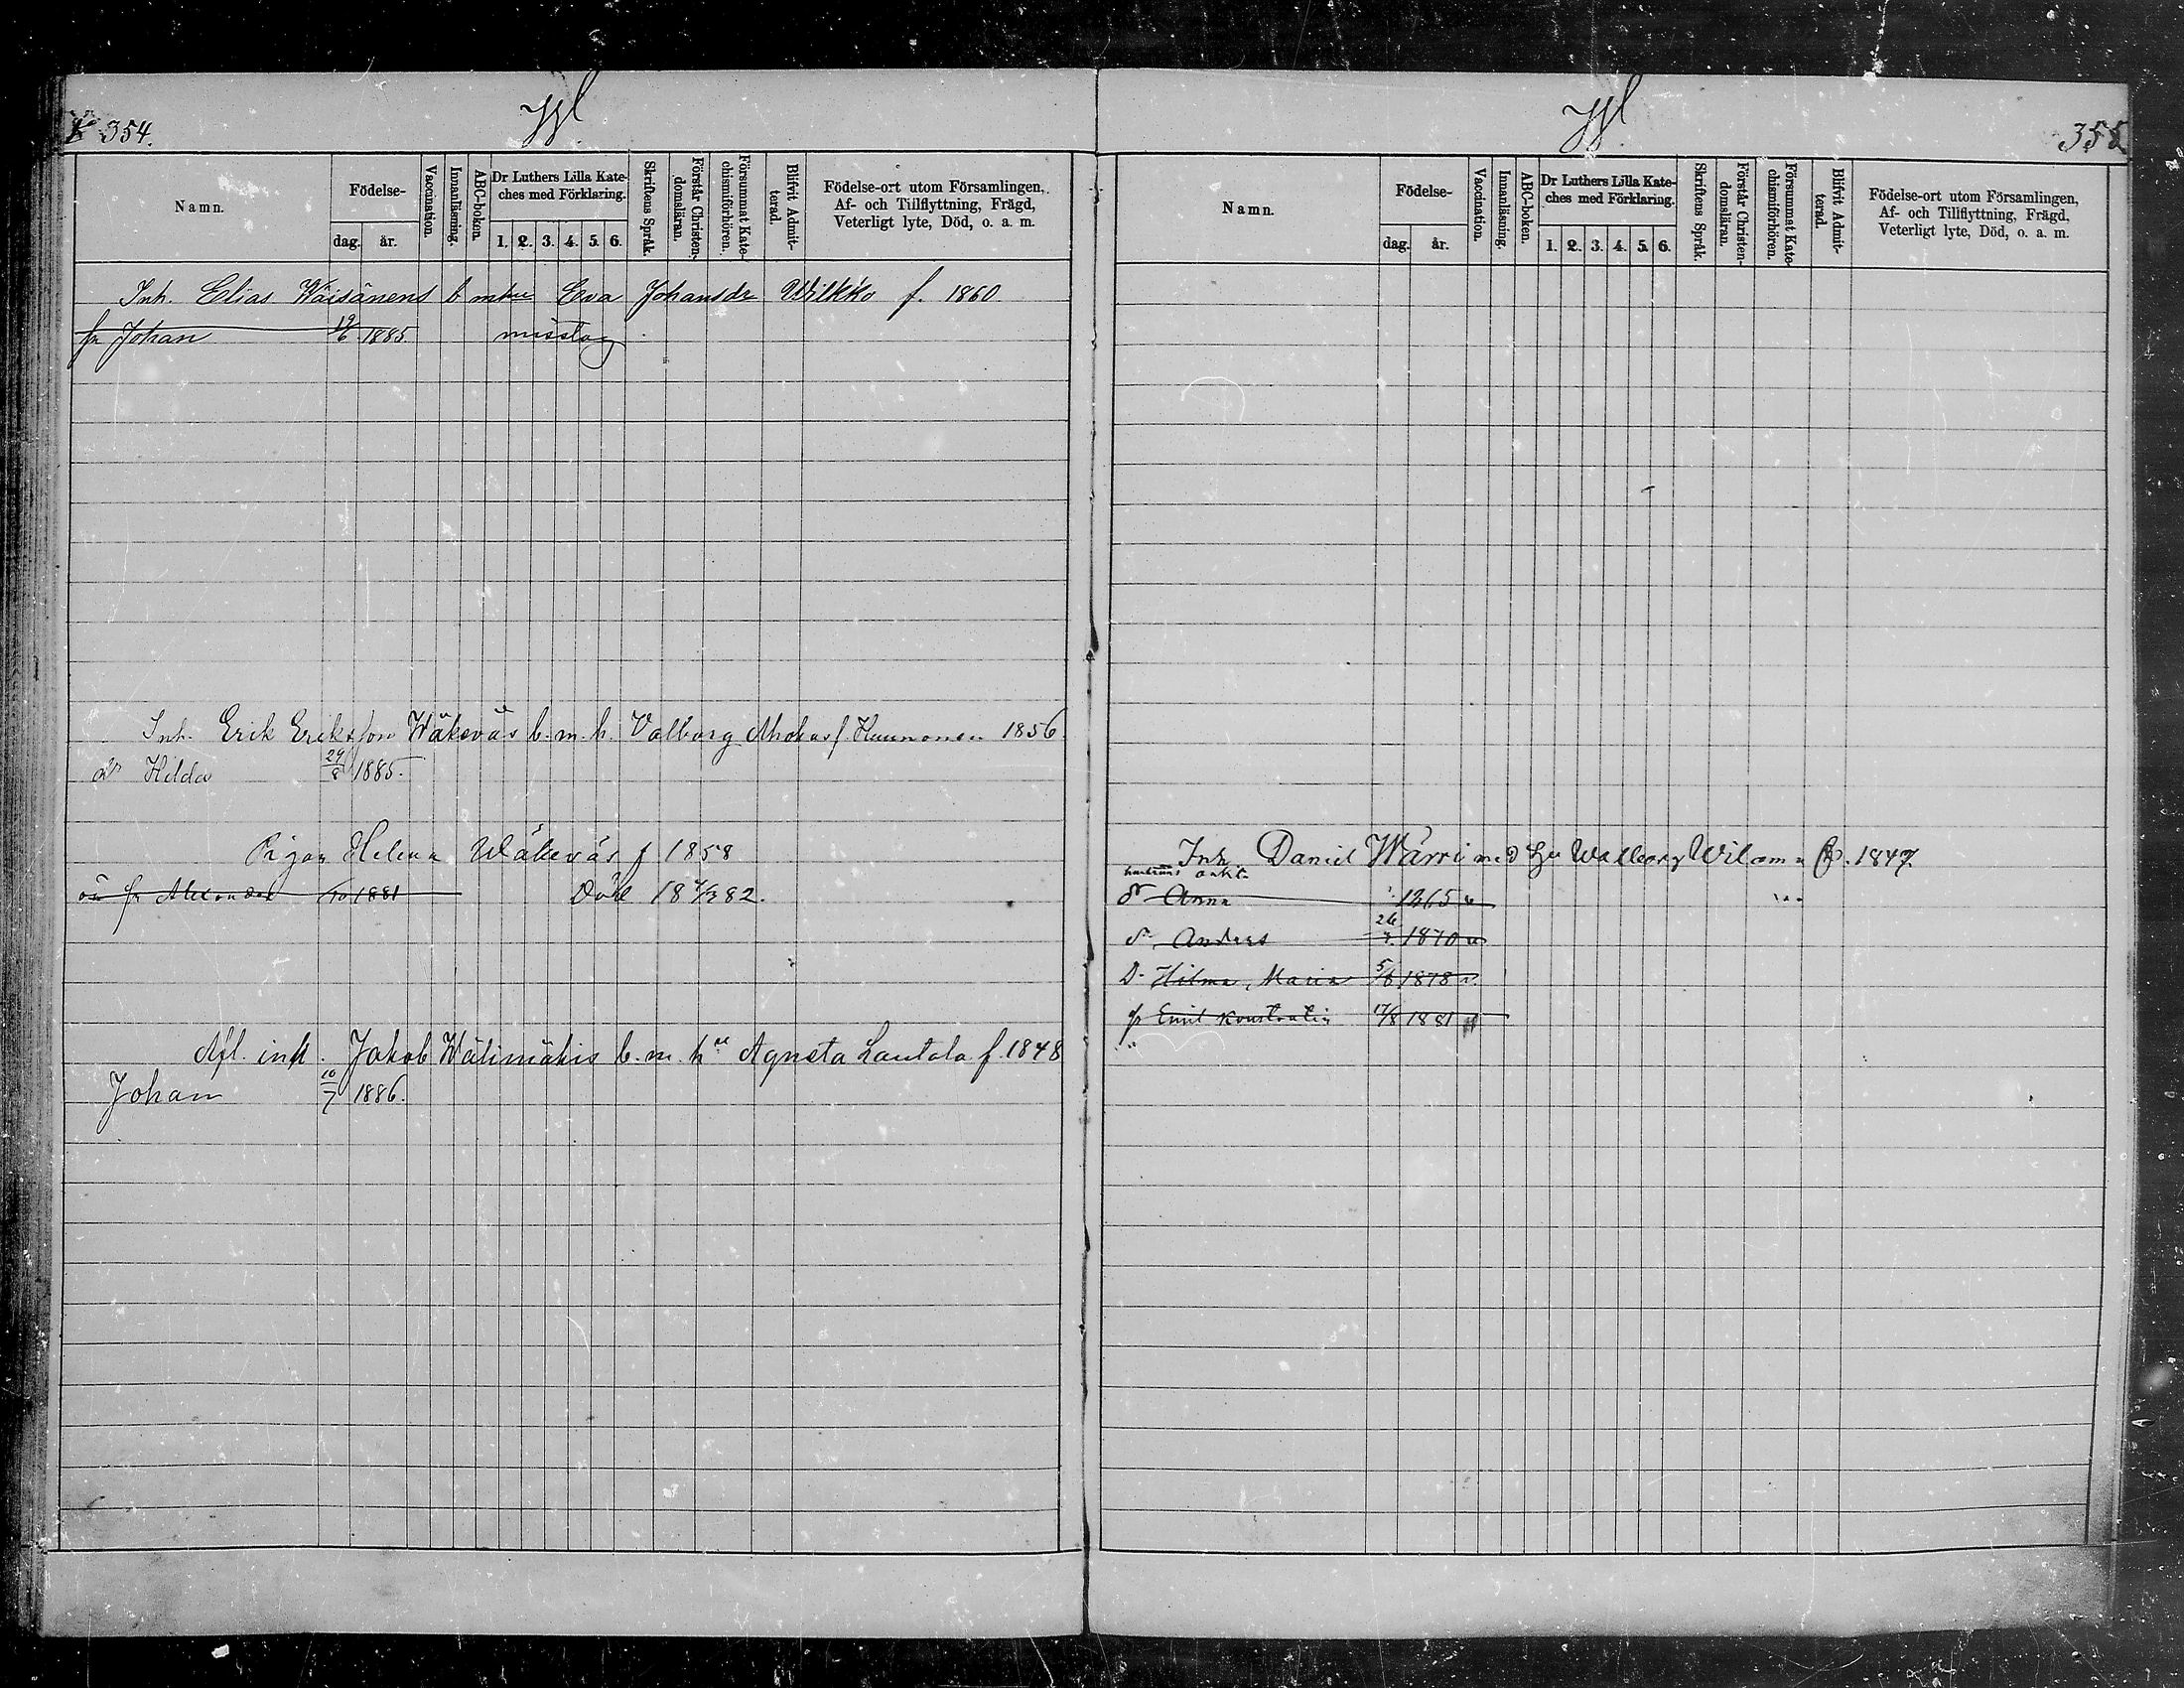 354.
Namn.
Födelse-
dag.
år.
Vaccination.
Innanläsning.
ABC-boken.
Dr Luthers Lilla Kate-
ches med Förklaring.
1. 2. 3. 4. 5. 6.
Skriftens Språk.
Förstår Christen-
domsläran.
Försummat Kate-
chismiförhören.
Blifvit Admit-
terad.
Födelse-ort utom Församlingen,
Af- och Tillflyttning, Frägd,
Veterligt lyte, Död, o. a. m.
Inh. Elias Wäisänens b Eva Johansdr Wilkko f. 1860.
Johan 19/6 1885. misstag
Inh. Erik Eriksson Wäkeväs b. m. h. Valborg Hunnonen 1856.
Hilda 24/8 1885.
Pigan Helena Wäkeväs f 1858
Alexander /10 1881 Död 18 82.
Afl. inh. Jakob Wälimäkis b. m. hu Agneta Lautala f. 1848
Johan 10/7 1886.
355
Namn.
Födelse-
dag.
år.
Vaccination.
Innanläsning.
ABC-boken.
Dr Luthers Lilla Kate-
ches med Förklaring.
1. 2. 3. 4. 5. 6.
Skriftens Språk.
Förstår Christen-
domsläran.
Försummat Kate-
chismiförhören.
Blifvit Admit-
terad.
Födelse-ort utom Församlingen,
Af- och Tillflyttning, Frägd,
Veterligt lyte, Död, o. a. m.
Inh. Daniel Wärri med Walborg 1847.
Anna 1865
Anders 26 1870
D. Hilma, Maria 5/8 1878
Emil Konstantin 17/8 1881